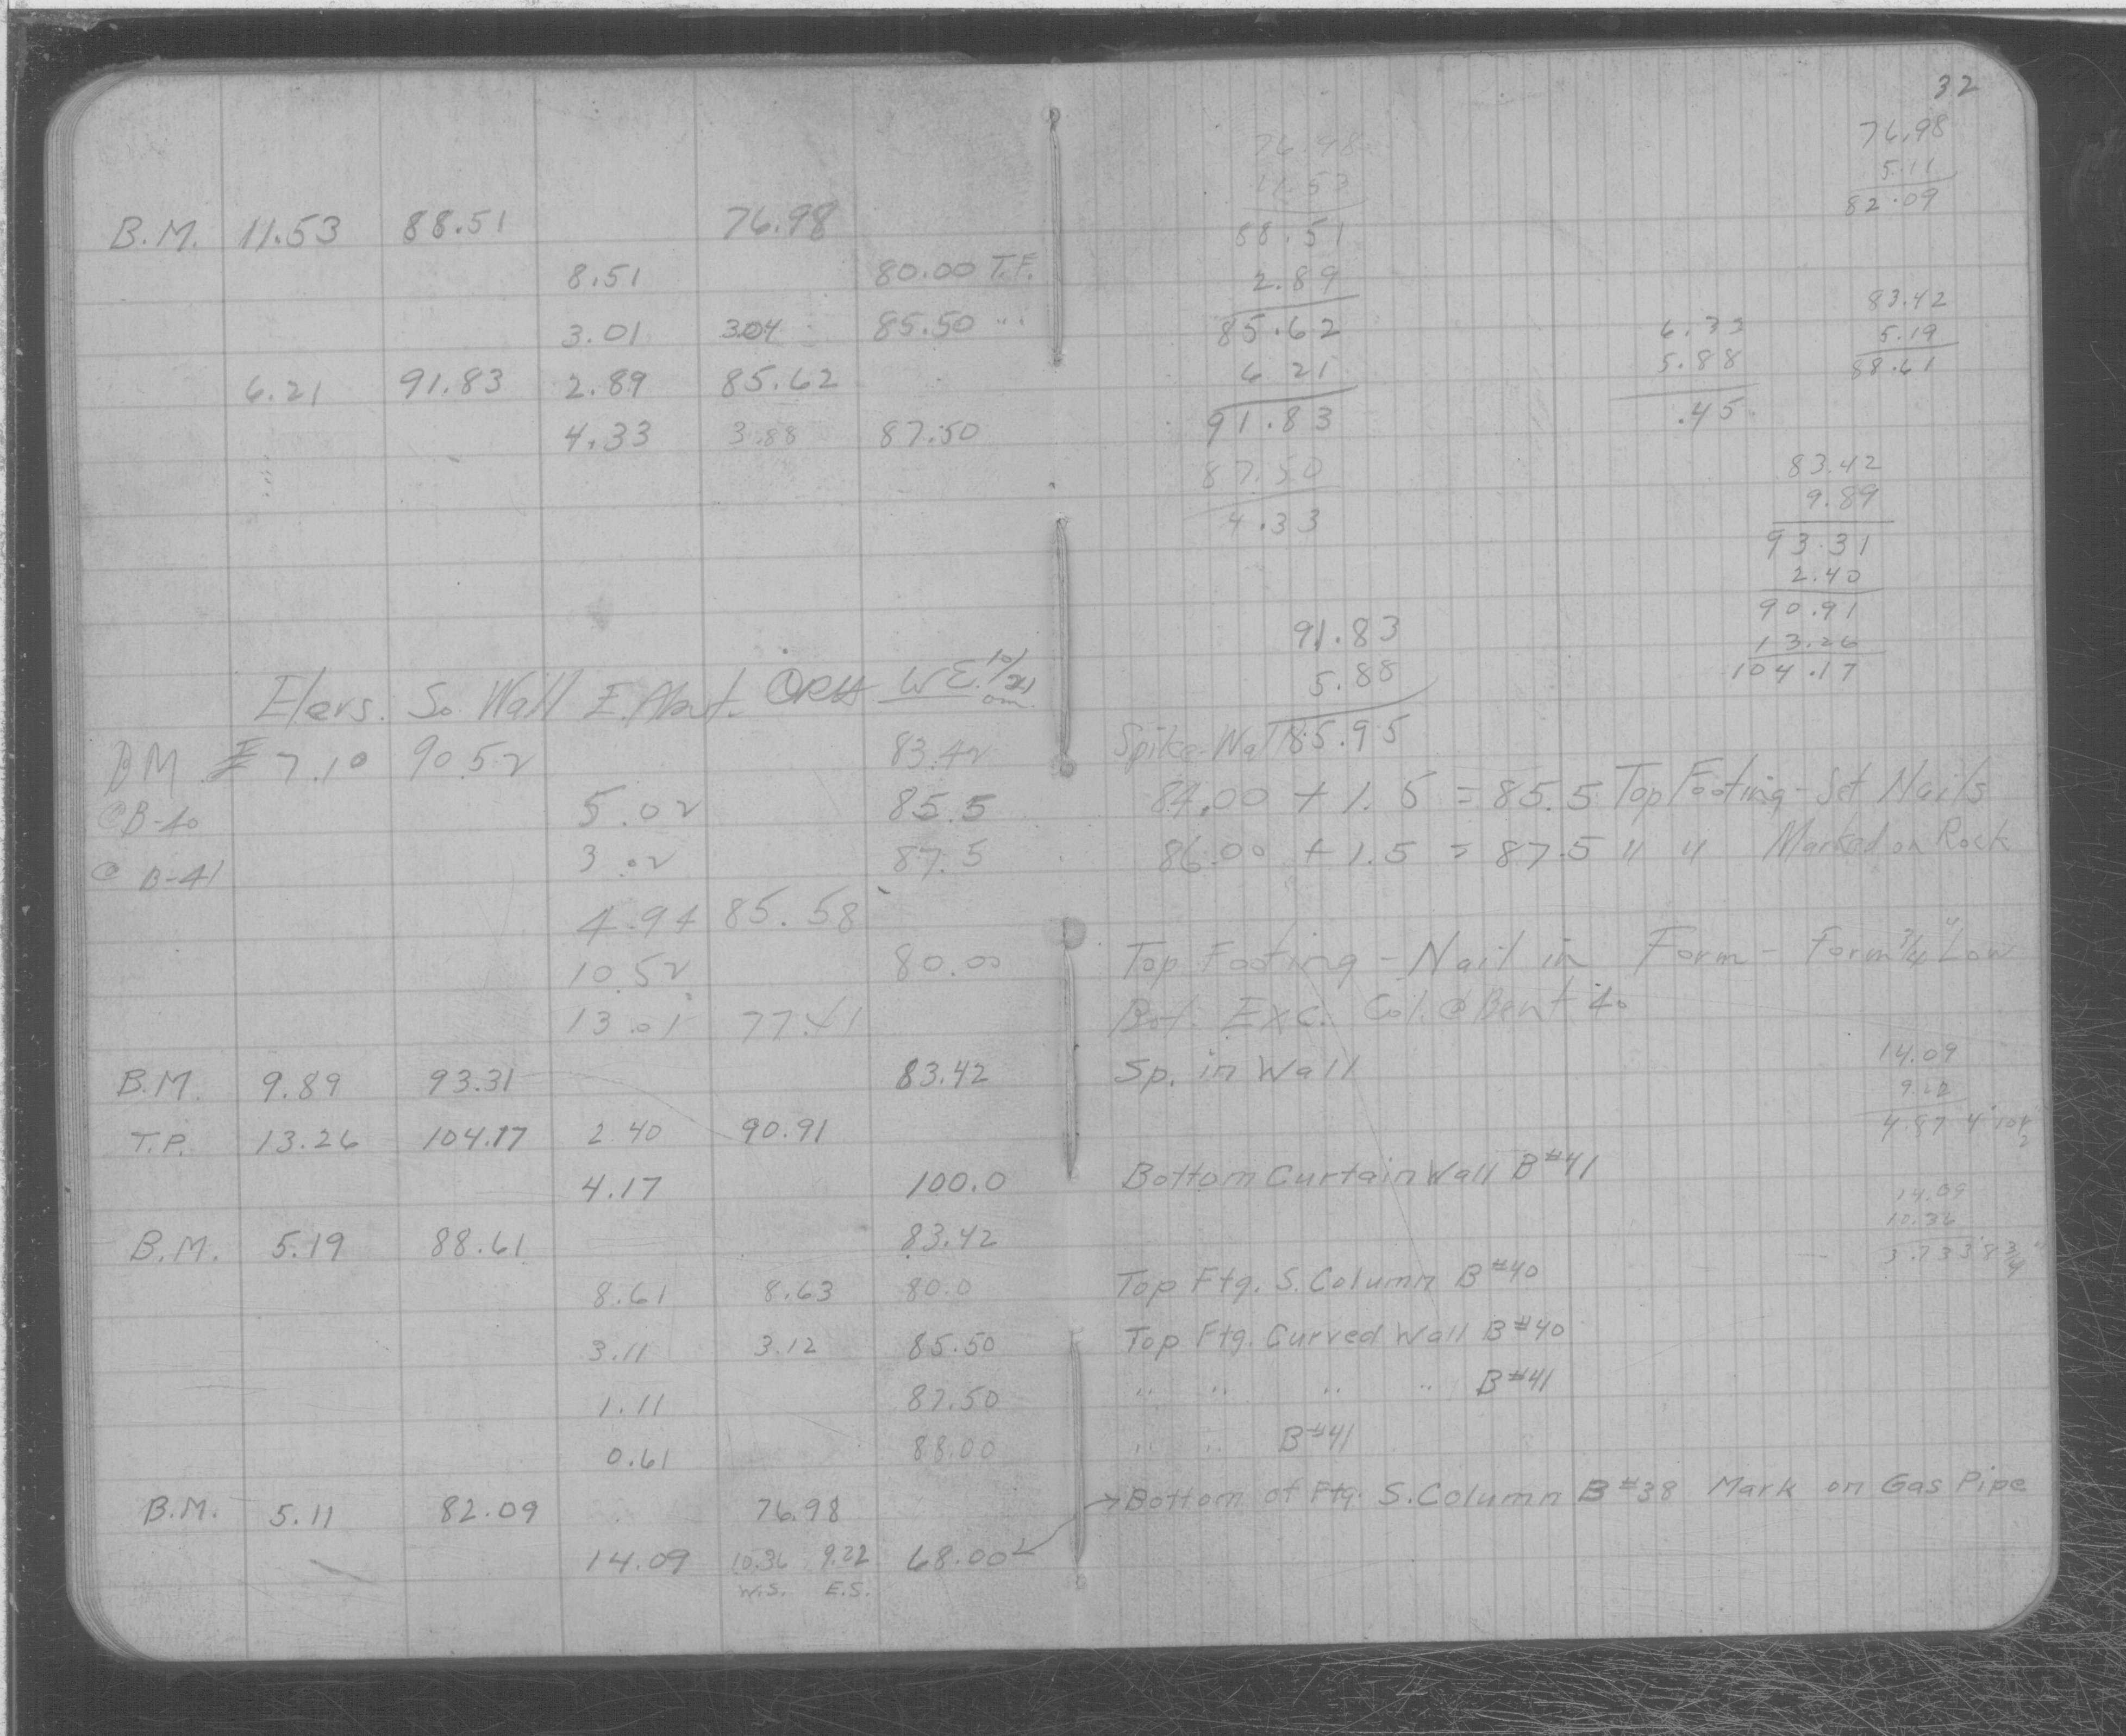 B.M. 11.53 88.51 76.98
8.51 80.00 T.F.
3.01 3.04 85.50 "
6.21 91.83 2.89 85.62
4.33 3.88 87.50
Elevs. So. Wall E. Abut.
BM 7.10 90.52 83.42
@B-40 5.02 85.5
@ B-41 3.02 87.5
4.94 85.58
10.52 80.00
13.01 77.51
B.M. 9.89 93.31 83.42
T.P. 13.26 104.17 2.40 90.91
4.17 100.0
B.M. 5.19 88.61 83.42
8.61 8.63 80.0
3.11 3.12 85.50
1.11 87.50
0.61 88.00
B.M. 5.11 82.09 76.98
14.09 10.36 9.22 68.00
W.S. E.S.
32
76.98
11.53
88.51
2.89
85.62
6.21
91.83
87.50
4.33
76.98
5.11
82.09
6.33
5.88
.45
83.42
5.19
88.61
83.42
9.89
93.31
2.40
90.91
13.26
104.17
91.83
5.88
Spike-Wall 85.95
84.00 + 1.5 = 85.5 Top Footing - Set Nails
86.00 + 1.5 = 87.5 " " Marked on Rock
Top Footing - Nail in Form - Form 3/4" Low
Bot. Exc. Col. @ Bent 40
Sp. in Wall
14.09
9.22
4.87 4'10½
Bottom Curtain Wall B#41
14.09
10.36
3.73 3'8¾"
Top Ftg. S. Column B#40
Top Ftg. Curved Wall B#40
" " " " B#41
" " B#41
→Bottom of Ftg. S. Column B#38 Mark on Gas Pipe